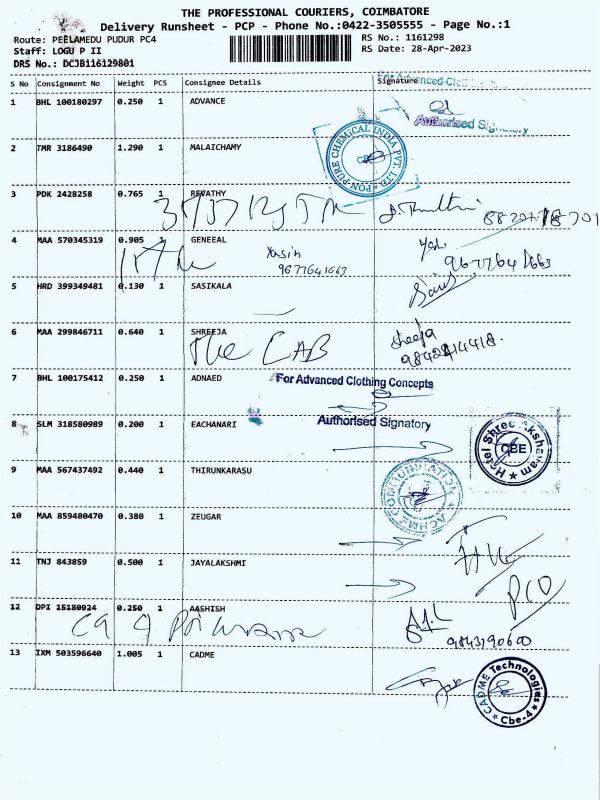 THE PROFESSIONAL COURIERS, COIMBATORE
Delivery Runsheet - PCP - Phone No.:0422-3505555 - Page No.:1
Route: PEELAMEDU PUDUR PC4
RS No.: 1161298
Staff: LOGU P II
RS Date: 28-Apr-2023
DRS No.: DCJB116129801
S No Consignment No Weight PCS Consignee Details Signature
For Advanced
1 BHL 100180297 0.250 1 ADVANCE
Authorised Signatory
2 TMR 3186490 1.290 1 MALAICHAMY
PON PURE CHEMICAL INDIA PVT. LTD
3 PDK 2428258 0.765 1 REVATHY
4 MAA 570345319 0.905 1 GENEEAL
Yasin
9677641663
9677641663
5 HRD 399349481 0.130 1 SASIKALA
6 MAA 299846711 0.640 1 SHREEJA
The LAB
Sheeja
7 BHL 100175412 0.250 1 ADNAED
For Advanced Clothing Concepts
8 SLM 318580989 0.200 1 EACHANARI
Authorised Signatory
Hotel Shree Akshayam
CBE
9 MAA 567437492 0.440 1 THIRUNKARASU
10 MAA 859480470 0.380 1 ZEUGAR
11 TNJ 843859 0.500 1 JAYALAKSHMI
12 DPI 15180924 0.250 1 AASHISH
9843190600
13 IXM 503596640 1.005 1 CADME
CADME Technologies
Cbe-4